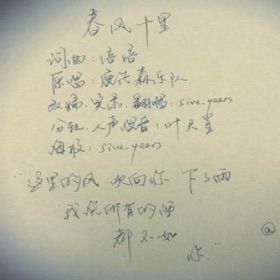 春风十里
词曲:倍倍
原唱:鹿先森乐队
改编.实录.翻唱:sive.years
分轨.人声混音:叶天星
海报:sive.years
"这里的风 吹向你 下了雨
我说所有的酒
都不如
你."